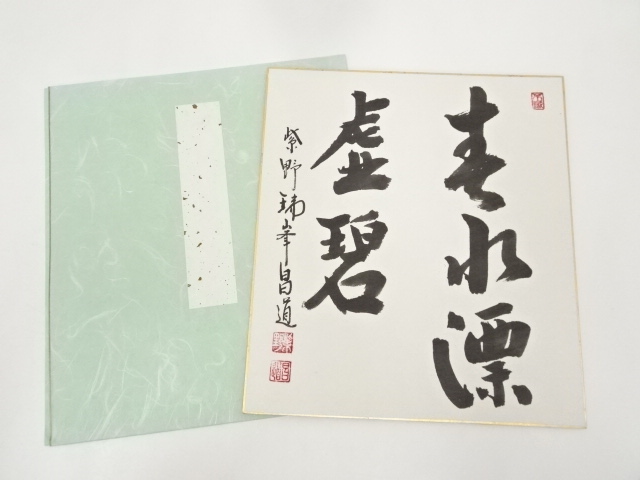 春水漂
虚碧
紫野瑞峯昌道